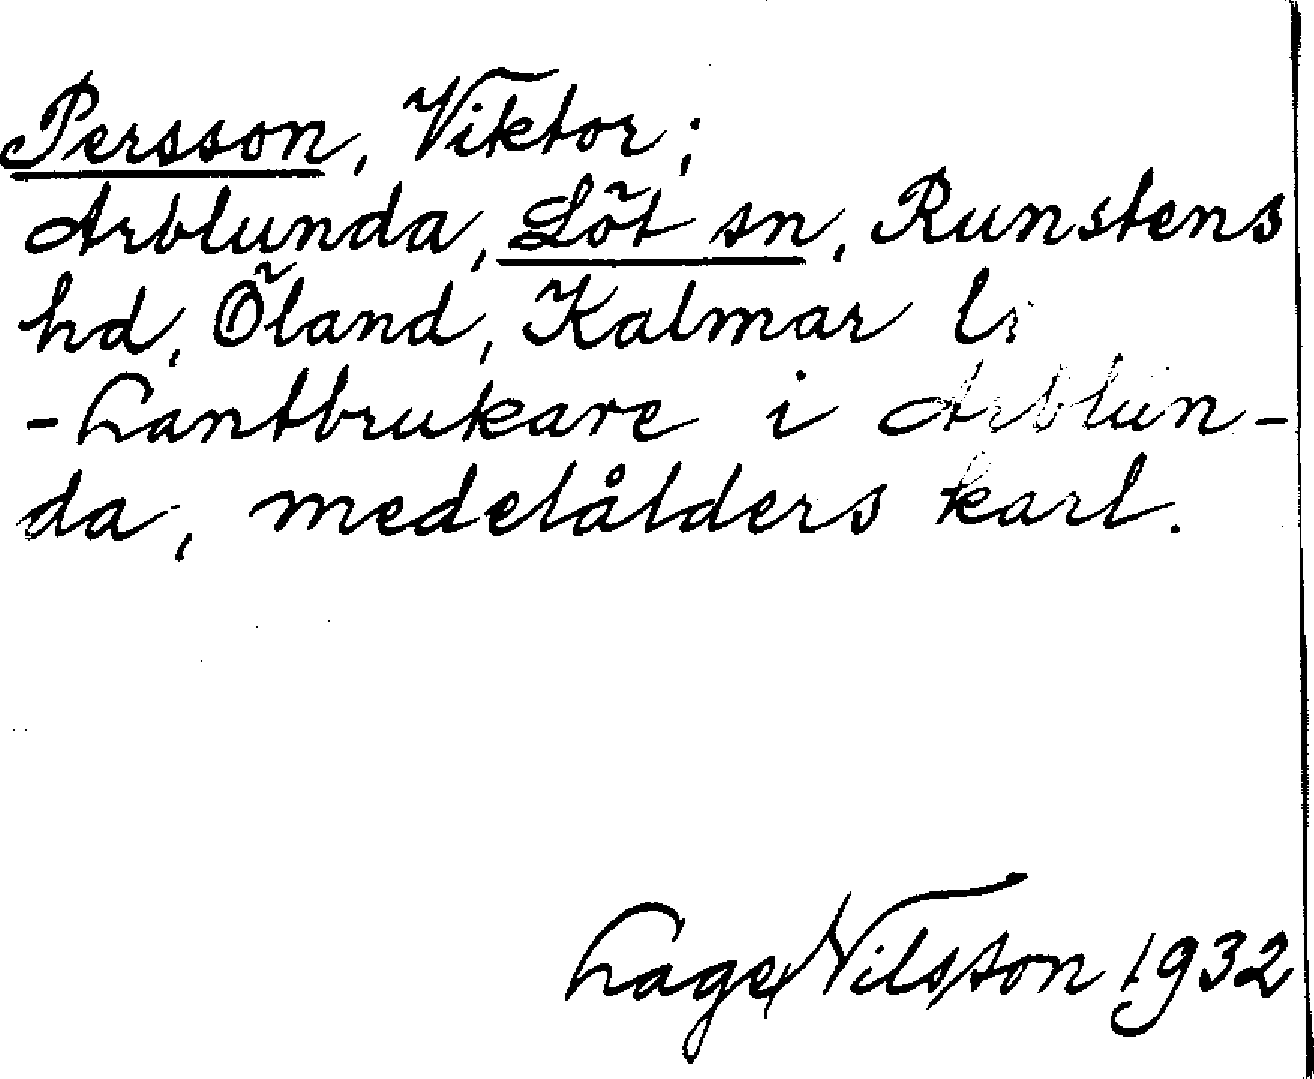 Persson, Viktor;
Arblunda, Löt sn, Runstens
hd, Öland, Kalmar l
-Lantbrukare i Arblun-
da, medelålders karl.
Lage Nilsson 1932